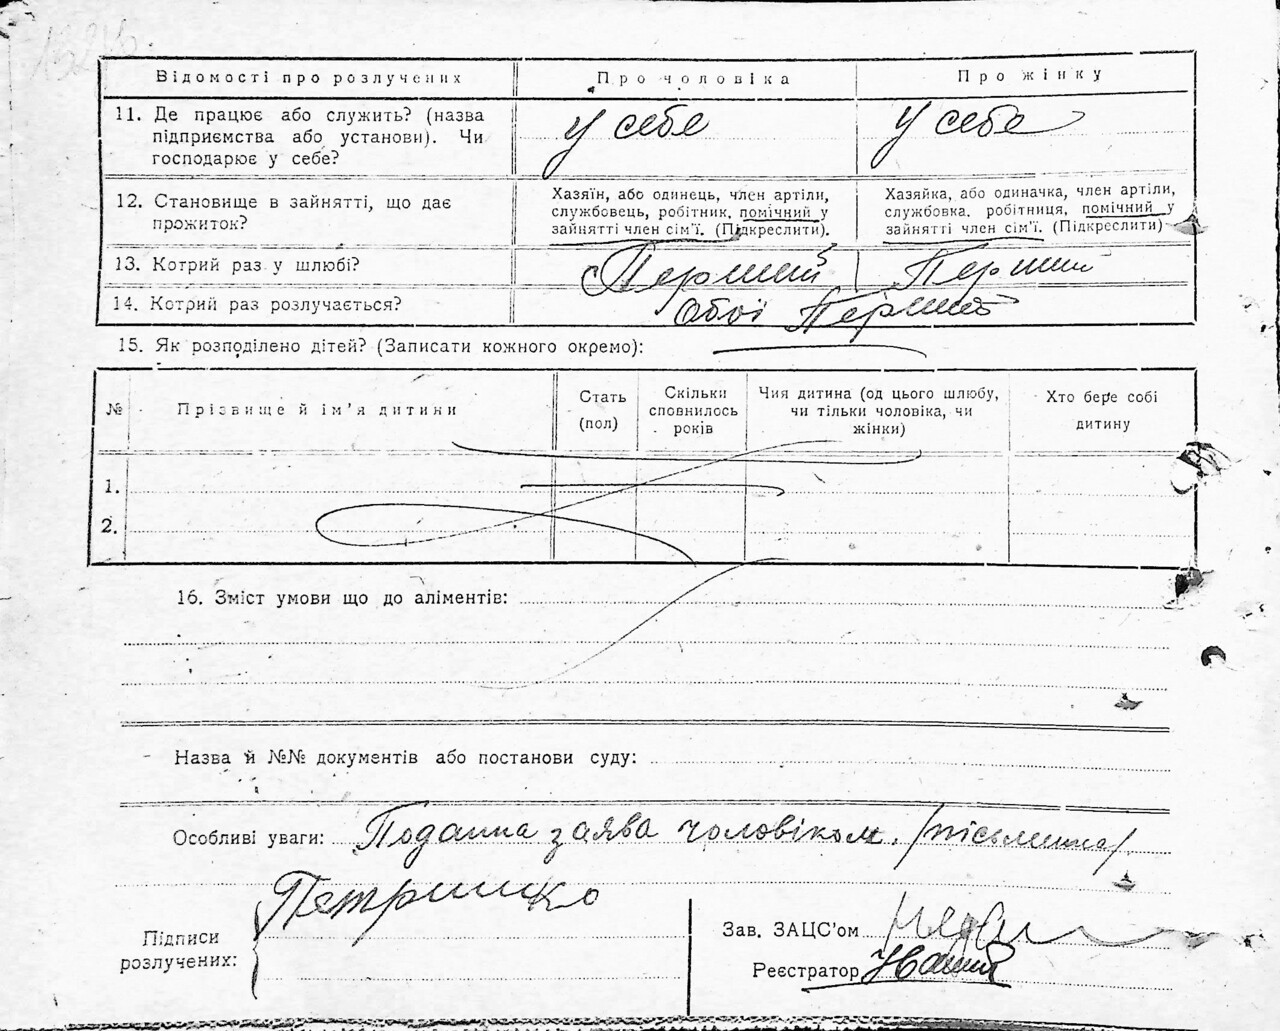 Відомості про розлучених Про чоловіка Про жінку
11. Де працює або служить? (назва підприємства або установи). Чи господарює у себе?
у себе
у себе
12. Становище в зайнятті, що дає прожиток?
Хазяїн, або одинець, член артіли,
службовець, робітник, помічний у
зайнятті член сім'ї. (Підкреслити).
Хазяйка, або одиначка, член артіли,
службовка. робітниця, помічний у
зайнятті член сім'ї. (Підкреслити)
13. Котрий раз у шлюбі? Перший Перший
14. Котрий раз розлучається? Обоє Перший
15. Як розподілено дітей? (Записати кожного окремо):
№ Прізвище й ім'я дитини
Стать
(пол)
Скільки
сповнилось
років
Чия дитина (од цього шлюбу,
чи тільки чоловіка, чи
жінки)
Хто бере собі
дитину
1.
2.
16. Зміст умови що до аліментів:
Назва й №№ документів або постанови суду:
Особливі уваги: Поданна заява чоловіком. /пісьменна/.
Підписи
розлучених:
Зав. ЗАЦС'ом
Реєстратор